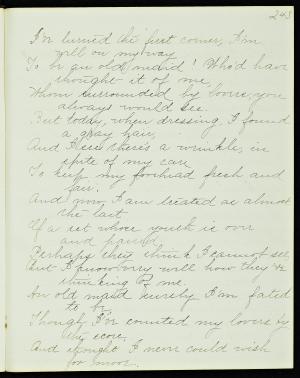 243
I've turned the first corner, I'm
well on my way
To be an old maid! Who'd have
thought it of me,
Whom surrounded by lovers, you
always would see.
But today, when dressing, I found
a gray hair,
And here there's a wrinkle, in
spite of my care
To keep my forhead fresh and
fair.
And now I am located as almost
the last
Of a set whose youth is over
and passed
Perhaps they think I cannot see,
But I know very well how they're
thinking of me.
An old maid surely I'm fated
to be
Though I've counted my lovers by
the score,
And thought I never could wish
for more.